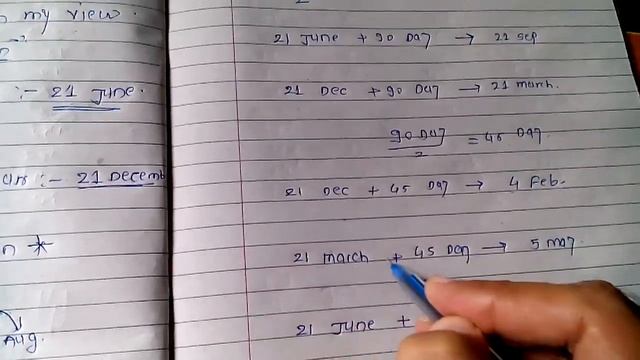 my view.
:- 21 June.
:- 21 Decemb
Aug.
21 June + 90 Day → 22 Sep
21 Dec + 90 Day → 21 march.
90 Day / 2 = 45 Day.
21 Dec + 45 Day → 4 Feb.
21 march + 45 Day → 5 may
21 June +